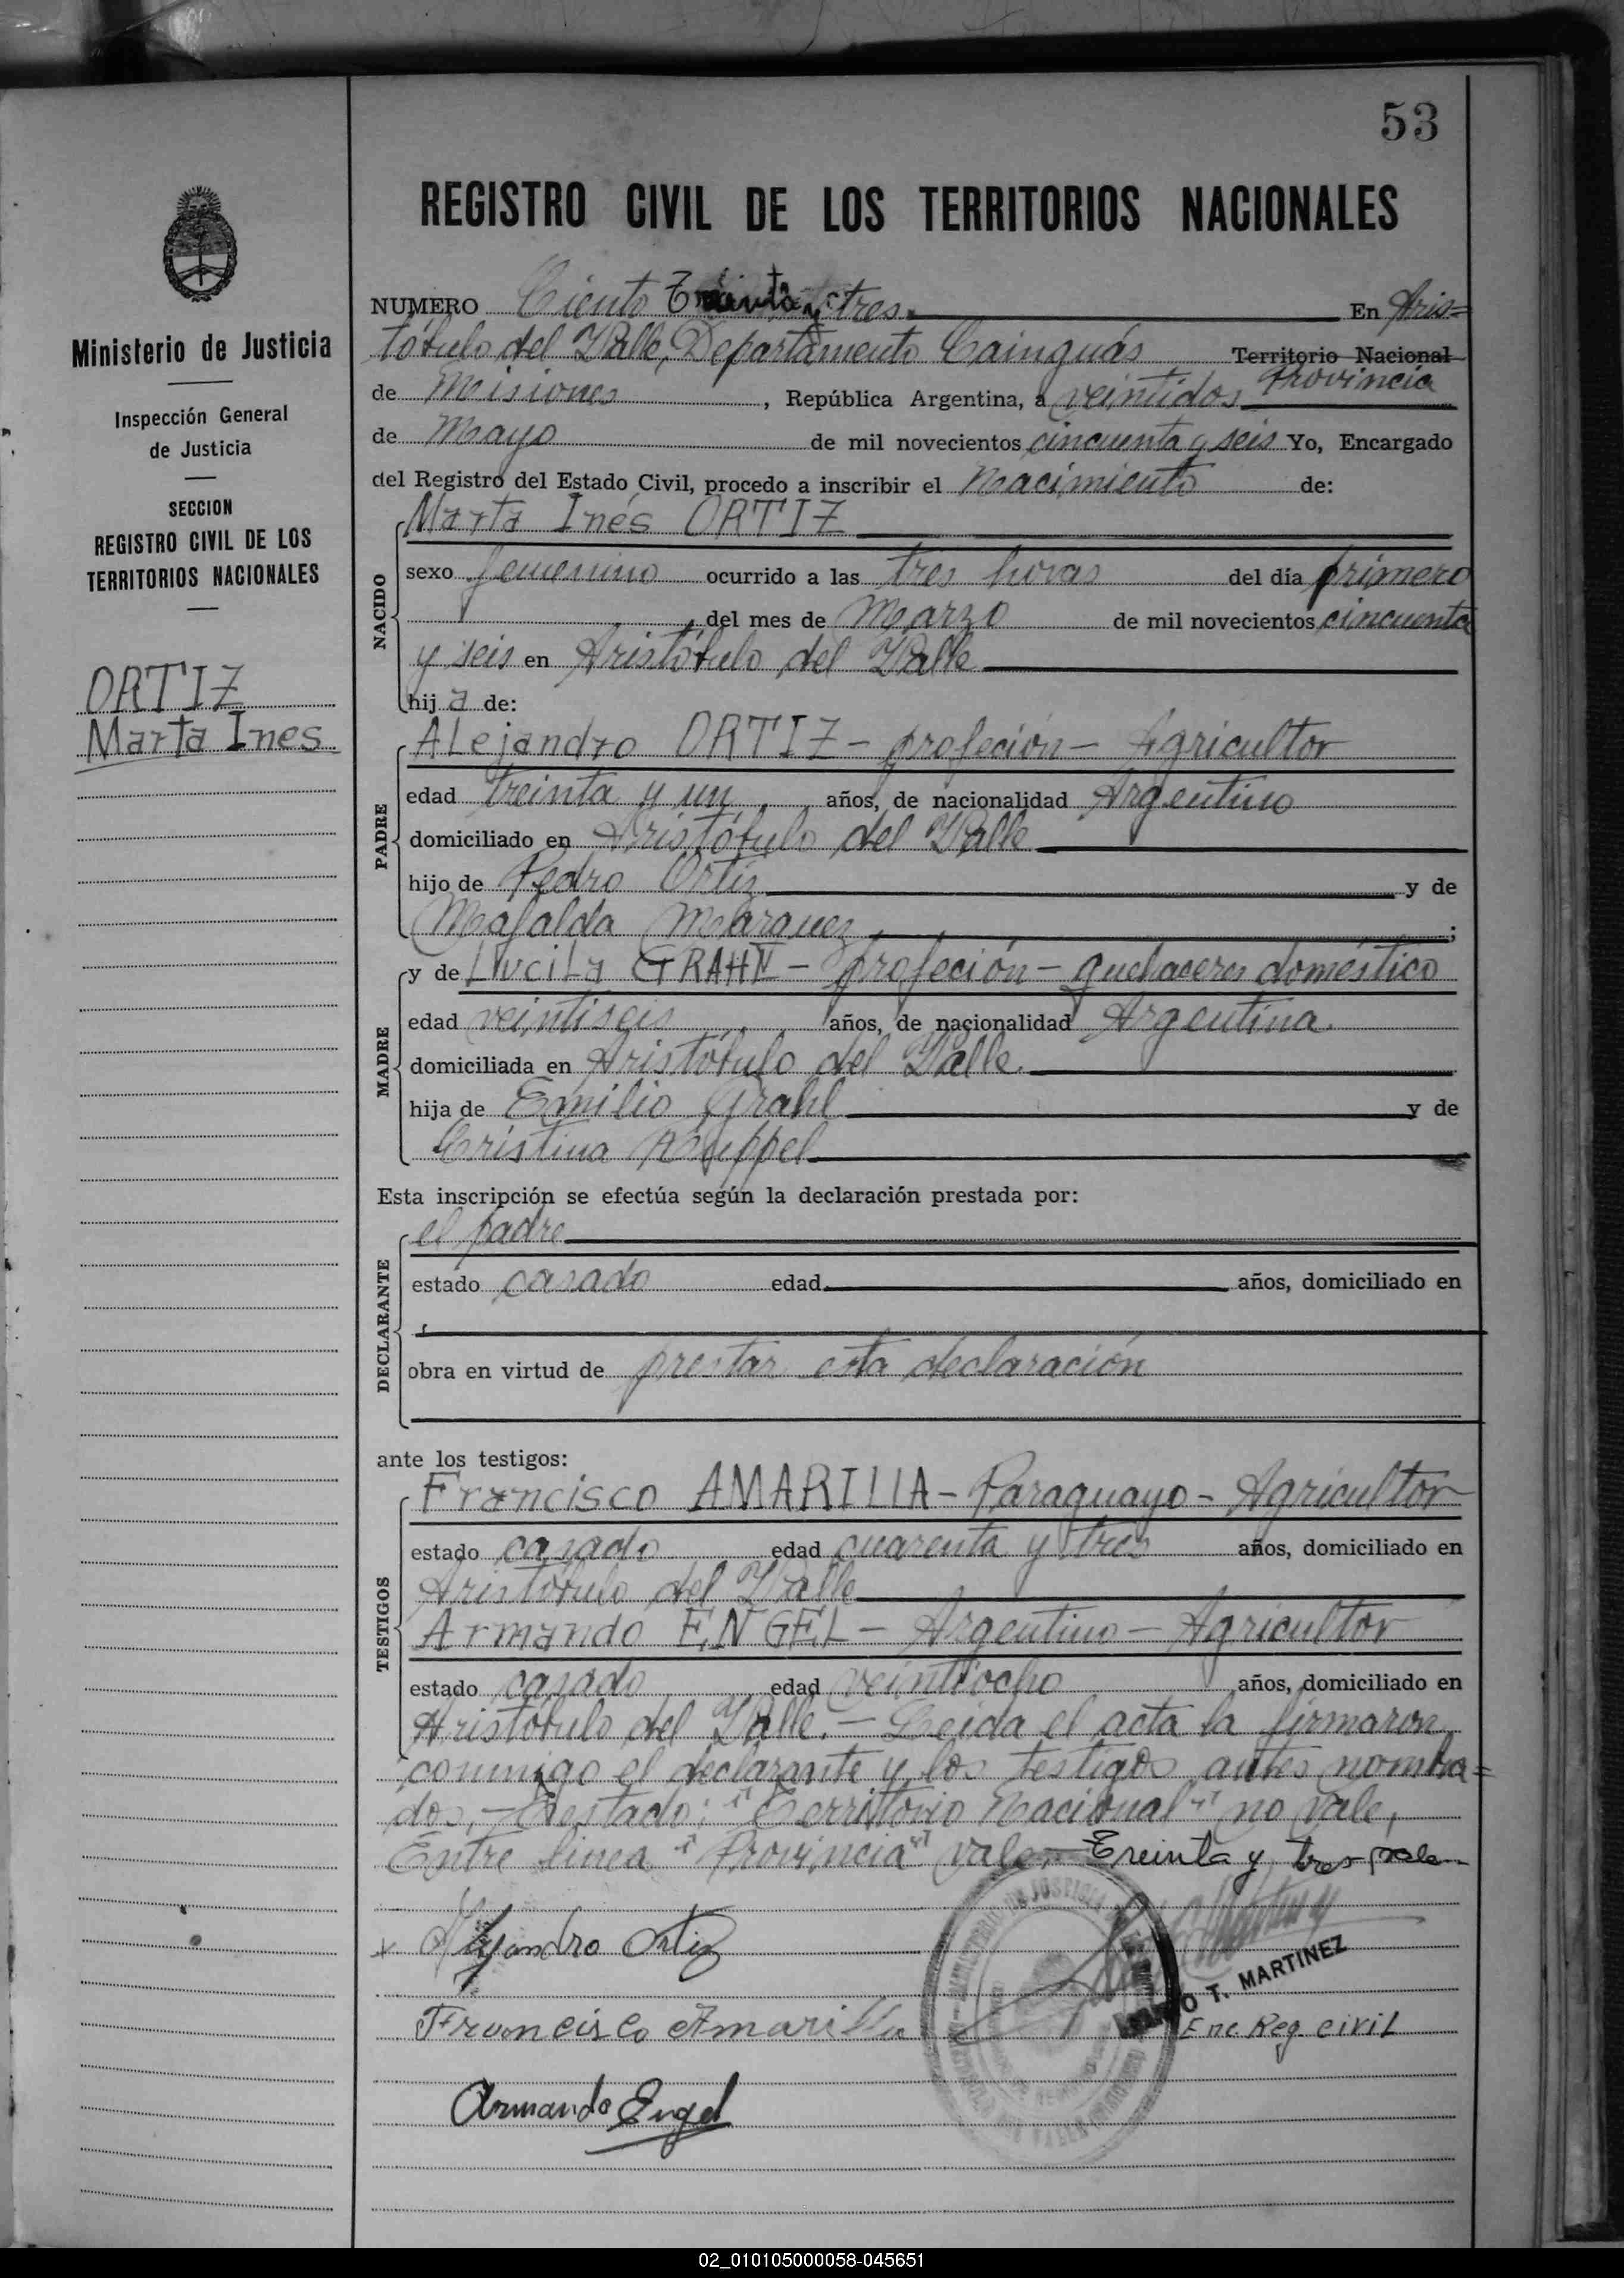 53
REGISTRO CIVIL DE LOS TERRITORIOS NACIONALES
Ministerio de Justicia
Inspección General
de Justicia
SECCION
REGISTRO CIVIL DE LOS
TERRITORIOS NACIONALES
ORTIZ
Marta Ines
NUMERO Ciento Treinta y tres. En Aris=
tóbulo del Valle, Departamento Cainguás Territorio Nacional
Provincia
de Misiones, República Argentina, a veintidos
de Mayo de mil novecientos cincuenta y seis Yo, Encargado
del Registro del Estado Civil, procedo a inscribir el Nacimiento de:
NACIDO
Marta Inés ORTIZ
sexo femenino ocurrido a las tres horas del día primero
, del mes de Marzo de mil novecientos cincuenta
y seis en Aristóbulo del Valle
hij a de:
PADRE
ALejandro ORTIZ - profeción - Agricultor
edad treinta y un años, de nacionalidad Argentino
domiciliado en Aristóbulo del Valle
hijo de Pedro Ortiz y de
Mafalda Marquez ;
MADRE
y de Lucila GRAHN - profeción - quehaceres doméstico
edad veintiseis años, de nacionalidad Argentina.
domiciliada en Aristóbulo del Valle.
hija de Emilio Grahl y de
Cristina
Esta inscripción se efectúa según la declaración prestada por:
DECLARANTE
el padre
estado casado edad años, domiciliado en
obra en virtud de prestar esta declaración
ante los testigos:
TESTIGOS
Francisco AMARILLA - Paraguayo - Agricultor
estado casado edad cuarenta y tres años, domiciliado en
Aristóbulo del Valle
Armando ENGEL - Argentino - Agricultor
estado casado edad veintiocho años, domiciliado en
Aristóbulo del Valle. - Leida el acta la firmaron
conmigo el declarante y los testigos antes nombra=
dos, - Testado: "Territorio Nacional" no vale,
Entre linea "Provincia" vale. - Treinta y tres vale
Alejandro Ortiz
T. MARTINEZ
Francisco Amarilla
Enc. Reg civil
Armando Engel
02_010105000058-045651